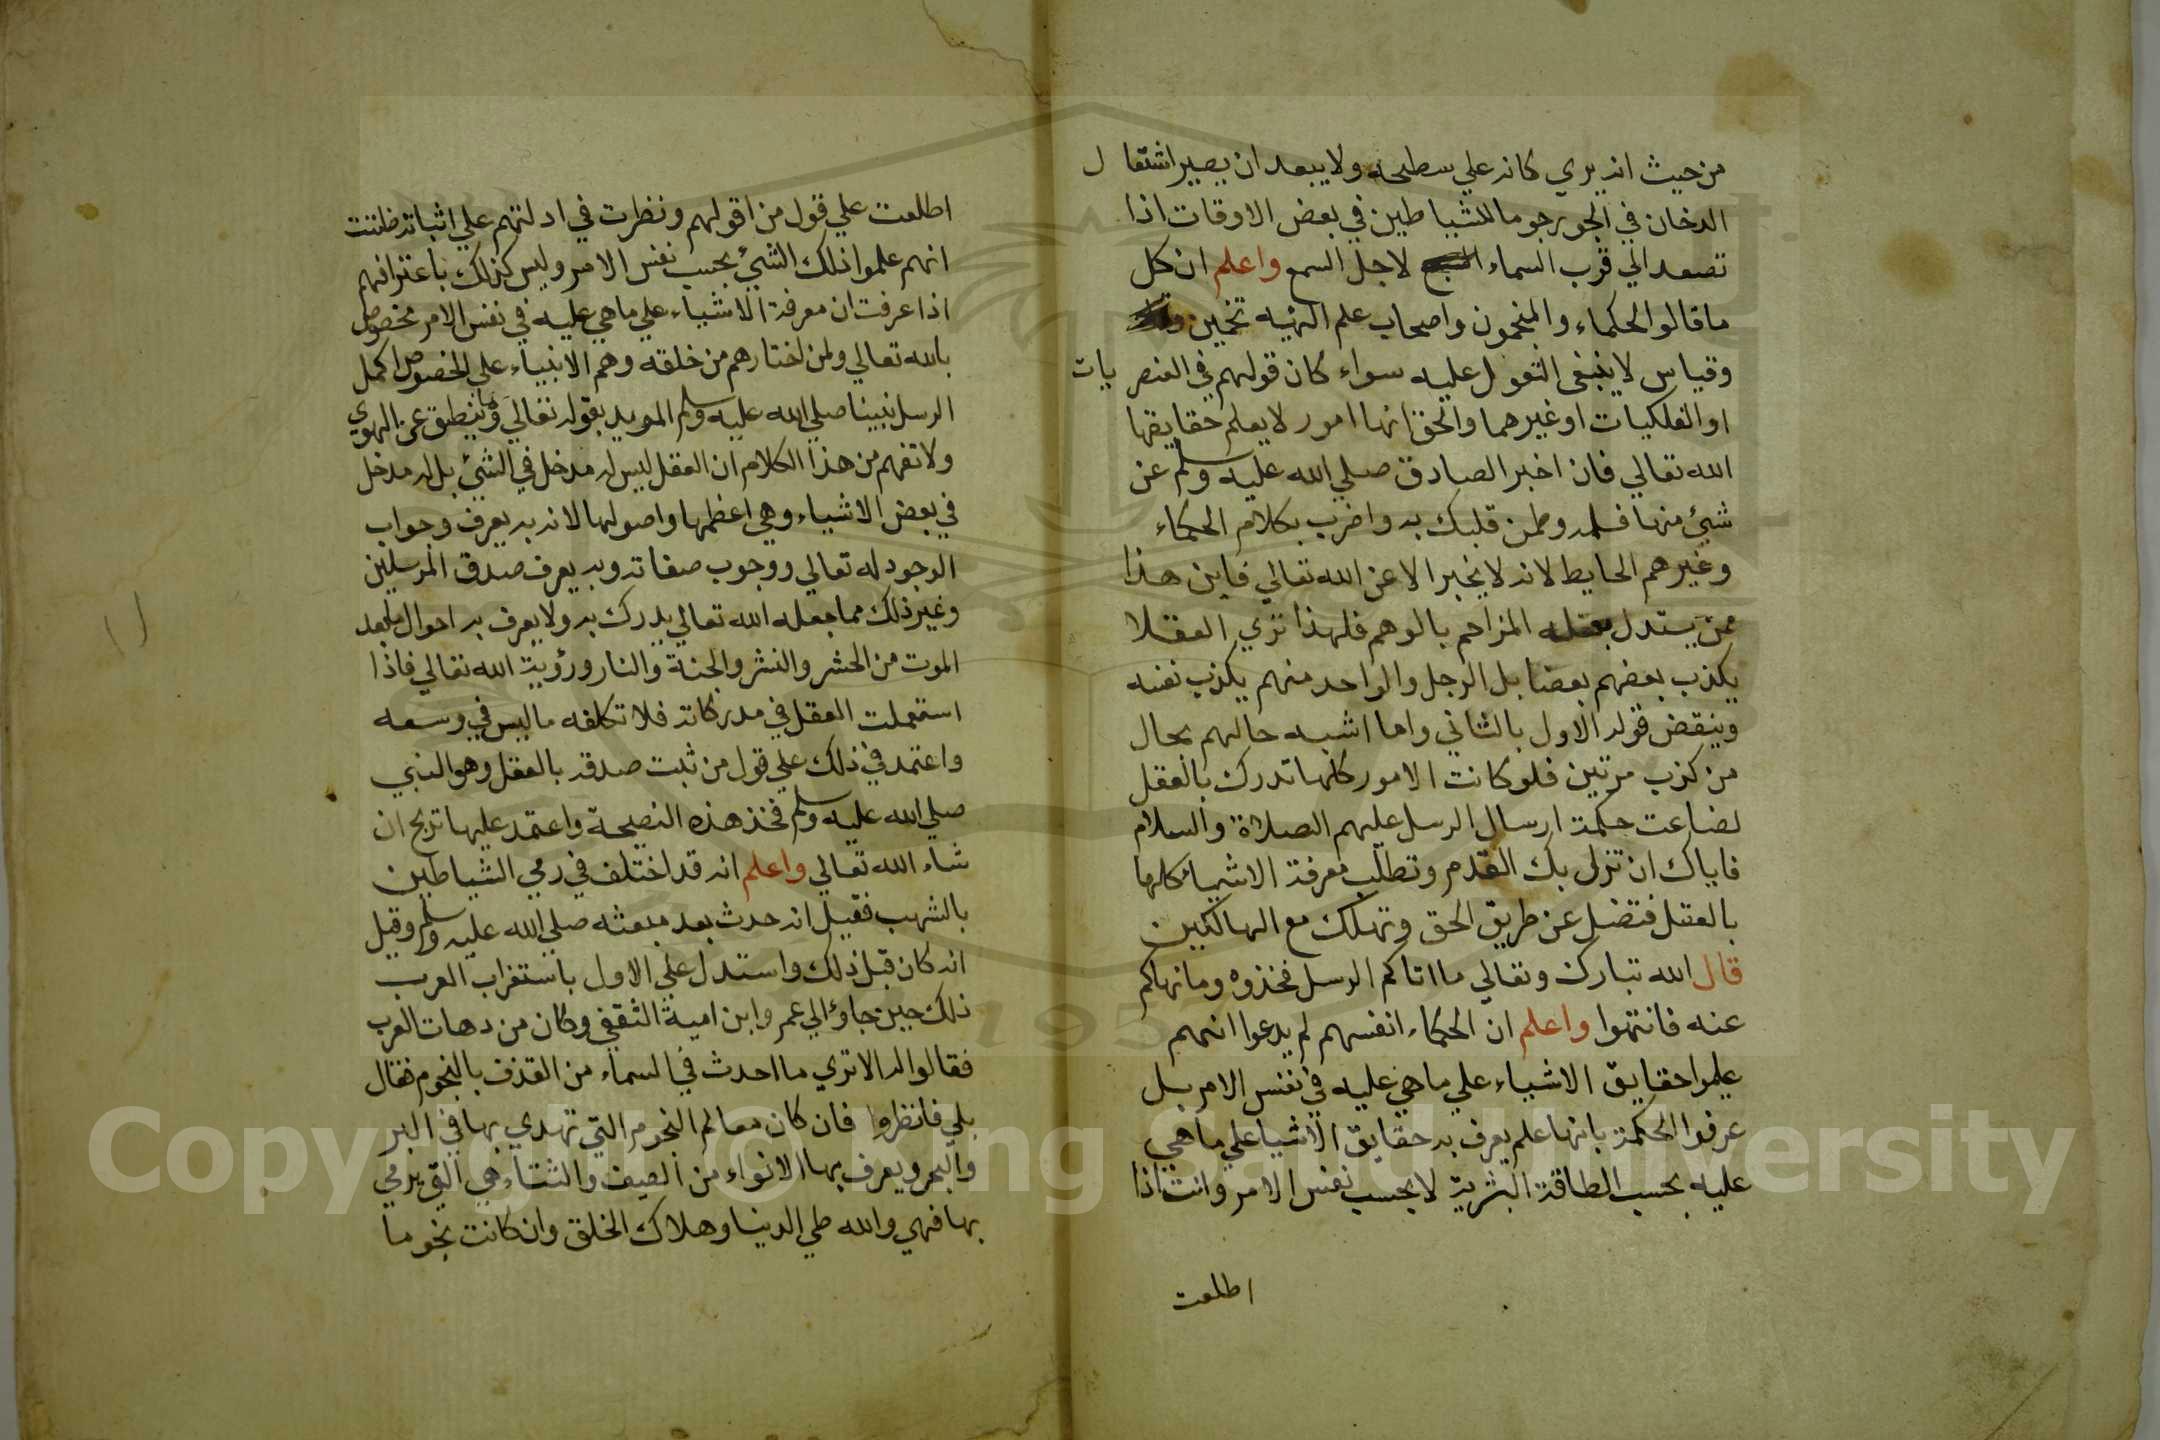 من حيث انه يري كانه علي سطحه ولا يبعد ان يصير اشتعال
الدخان في الجو رجوما للشياطين في بعض الاوقات اذا
تصعد الي قرب السماء لاجل السمع واعلم ان كل
ما قالوا الحكماء والمنجمون واصحاب علم الهئيه تخمين
وقياس لا ينبغى التعول عليه سواء كان قولهم في العنصريات
او الفلكيات او غيرهما والحق انها امور لا يعلم حقايقها
الله تعالي فان اخبر الصادق صلي الله عليه وسلم عن
شيئ منها فلمه وطمن قلبك به واضرب بكلام الحكماء
وغيرهم الحايط لانه لا يخبر الا عن الله تعالي فاين هذا
ممن يستدل بعقله المزاحم بالوهم فلهذا تري العقلا
يكذب بعضهم بعضا بل الرجل والواحد منهم يكذب نفسه
وينقض قوله الاول بالثاني واما اشبه حالهم بحال
من كذب مرتين فلو كانت الامور كلها تدرك بالعقل
لضاعت حكمة ارسال الرسل عليهم الصلاة والسلام
فاياك ان تزل بك القدم وتطلب معرفة الاشياء كلها
بالعقل فتضل عن طريق الحق وتهلك مع الهالكين
قال الله تبارك وتعالي ما اتاكم الرسل فخذوه وما نهاكم
عنه فانتهوا واعلم ان الحكماء انفسهم لم يدعوا انهم
علموا حقايق الاشياء علي ما هي عليه في نفس الامر بل
عرفوا الحكمة بانها علم يعرف به حقايق الاشيا علي ما هي
عليه بحسب الطاقة البشرية لا بحسب نفس الامر وانت اذا
اطلعت
اطلعت علي قول من اقولهم ونظرت في ادلتهم علي اثباته ظننت
انهم علموا ذلك الشيئ بحسب نفس الامر وليس كذلك باعترافهم
اذا عرفت ان معرفة الاشياء علي ما هي عليه في نفس الامر مخصوص
بالله تعالي ولمن اختارهم من خلقه وهم الانبياء علي الخصوص اكمل
الرسل نبينا صلي الله عليه وسلم المويد بقوله تعالي وما ينطق عن الهوي
ولا تفهم من هذا الكلام ان العقل ليس له مدخل في الشيئ بل له مدخل
في بعض الاشياء وهي اعظمها واصولها لانه به يعرف وجواب
الوجود له تعالي ووجوب صفاته وبه يعرف صدق المرسلين
وغير ذلك مما جعله الله تعالي يدرك به ولا يعرف به احوال ما بعد
الموت من الحشر والنشر والجنة والنار ورؤية الله تعالي فاذا
استعملت العقل في مدركاته فلا تكلفه ما ليس في وسعه
واعتمد في ذلك علي قول من ثبت صدقه بالعقل وهو النبي
صلي الله عليه وسلم فخذ هذه النصيحة واعتمد عليها تربح ان
شاء الله تعالي واعلم انه قد اختلف في رمي الشياطين
بالشهب فقيل انه حدث بعد مبعثه صلي الله عليه وسلم وقيل
انه كان قبل ذلك واستدل علي الاول باستغراب العرب
ذلك حين جاؤا الي عمر وابن امية الثقفي وكان من دهات العرب
فقالوا له الا تري ما احدث في السماء من القذف بالنجوم فقال
بلي فانظروا فان كان معالم النجوم التي تهدي بها في البر
والبحر ويعرف بها الانواء من الصيف والشتاء هي التي يرمي
بها فهي والله طي الدنيا وهلاك الخلق وان كانت نجوما
Copyright © King Saud University